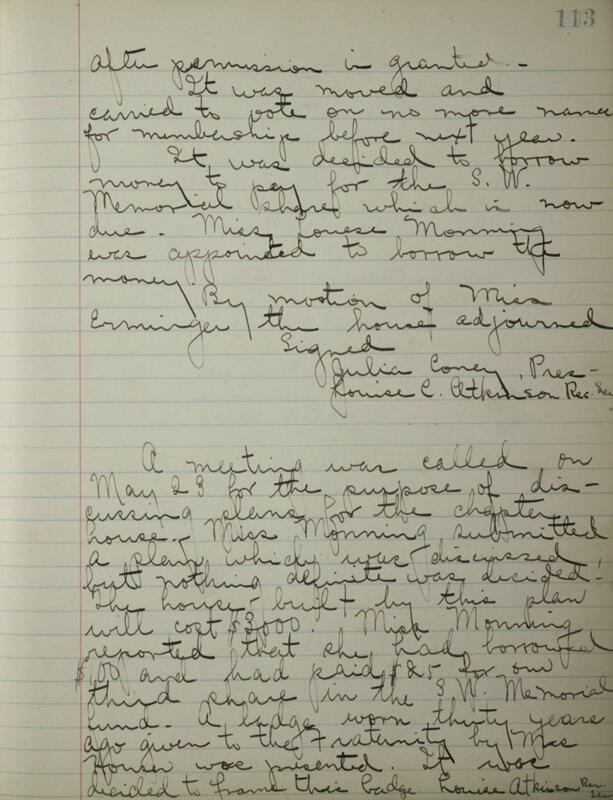 113
after permission is granted.-
It was moved and
carried to vote on no more names
for membership before next year.
It was decided to borrow
money to pay for the S. W.
Memorial share which is now
due. Miss Louese Monning
was appointed to borrow the
money. By mostion of Miss
Erminger the house adjourned
Signed
Julia Coney, Pres-
Louise C. Atkinson Rec. Sec
A meeting was called on
May 23 for the purpose of dis-
cussing plans for the chapter
house. Miss Monning submitted
a plan which was discussed,
but nothing definite was decided.
The house built by this plan
will cost $3000. Miss Monning
reported that she had borrowed
and had paid $25 for our
third share in the S. W. Memorial
fund. A badge worn thirty years
ago given to the Fraternity by Miss
was presented. It was
decided to frame this badge Louise Atkinson Rec. Sec